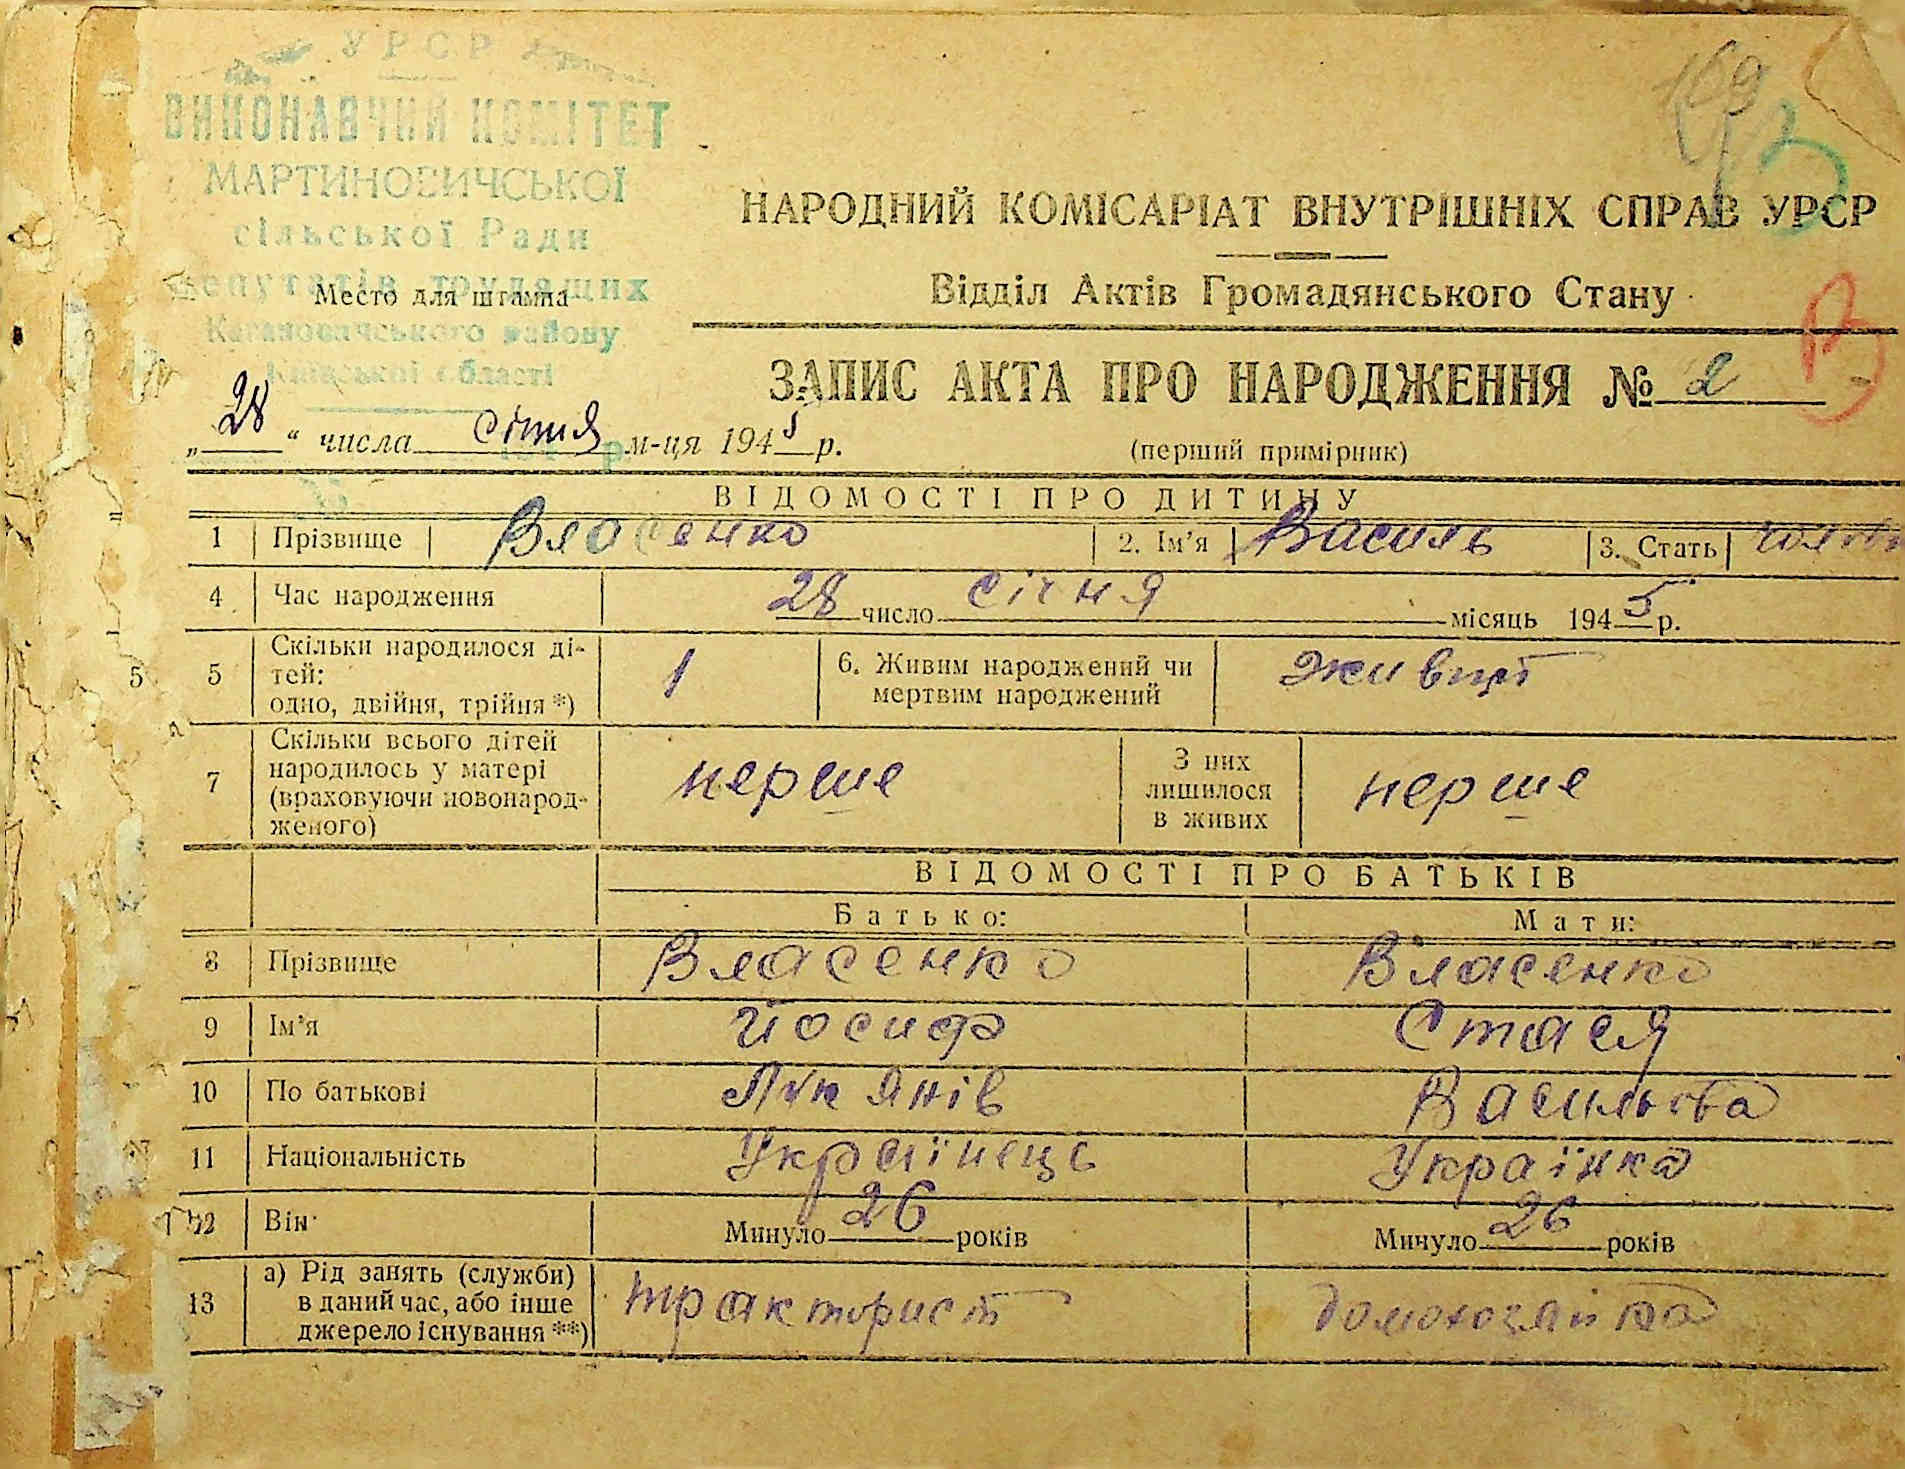 УРСР
ВИКОНАВЧИЙ КОМІТЕТ
МАРТИНОВИЧСЬКОЇ
сільської Ради
депутатів трудящих
Место для штампа
Кагановичського району
Київської області
169
НАРОДНИЙ КОМІСАРІАТ ВНУТРІШНІХ СПРАВ УРСР
Відділ Актів Громадянського Стану
В
ЗАПИС АКТА ПРО НАРОДЖЕННЯ № 2
„28“ числа січня м-ця 1945 р.
(перший примірник)
ВІДОМОСТІ ПРО ДИТИНУ
1 Прізвище Власенко 2. Ім’я Василь 3. Стать
4 Час народження 28 число січня місяць 1945 р.
5 5 Скільки народилося ді-
тей:
одно, двійня, трійня *) 1 6. Живим народжений чи
мертвим народжений живит
7 Скільки всього дітей
народилось у матері
(враховуючи новонарод-
женого) перше З них
лишилося
в живих перше
ВІДОМОСТІ ПРО БАТЬКІВ
Батько: Мати:
8 Прізвище Власенко Власенко
9 Ім’я Йосиф Стася
10 По батькові Лук янів Васильова
11 Національність Українець Українка
12 Він Минуло 26 років Минуло 26 років
13 а) Рід занять (служби)
в даний час, або інше
джерело існування **) тракторист домохозяйка